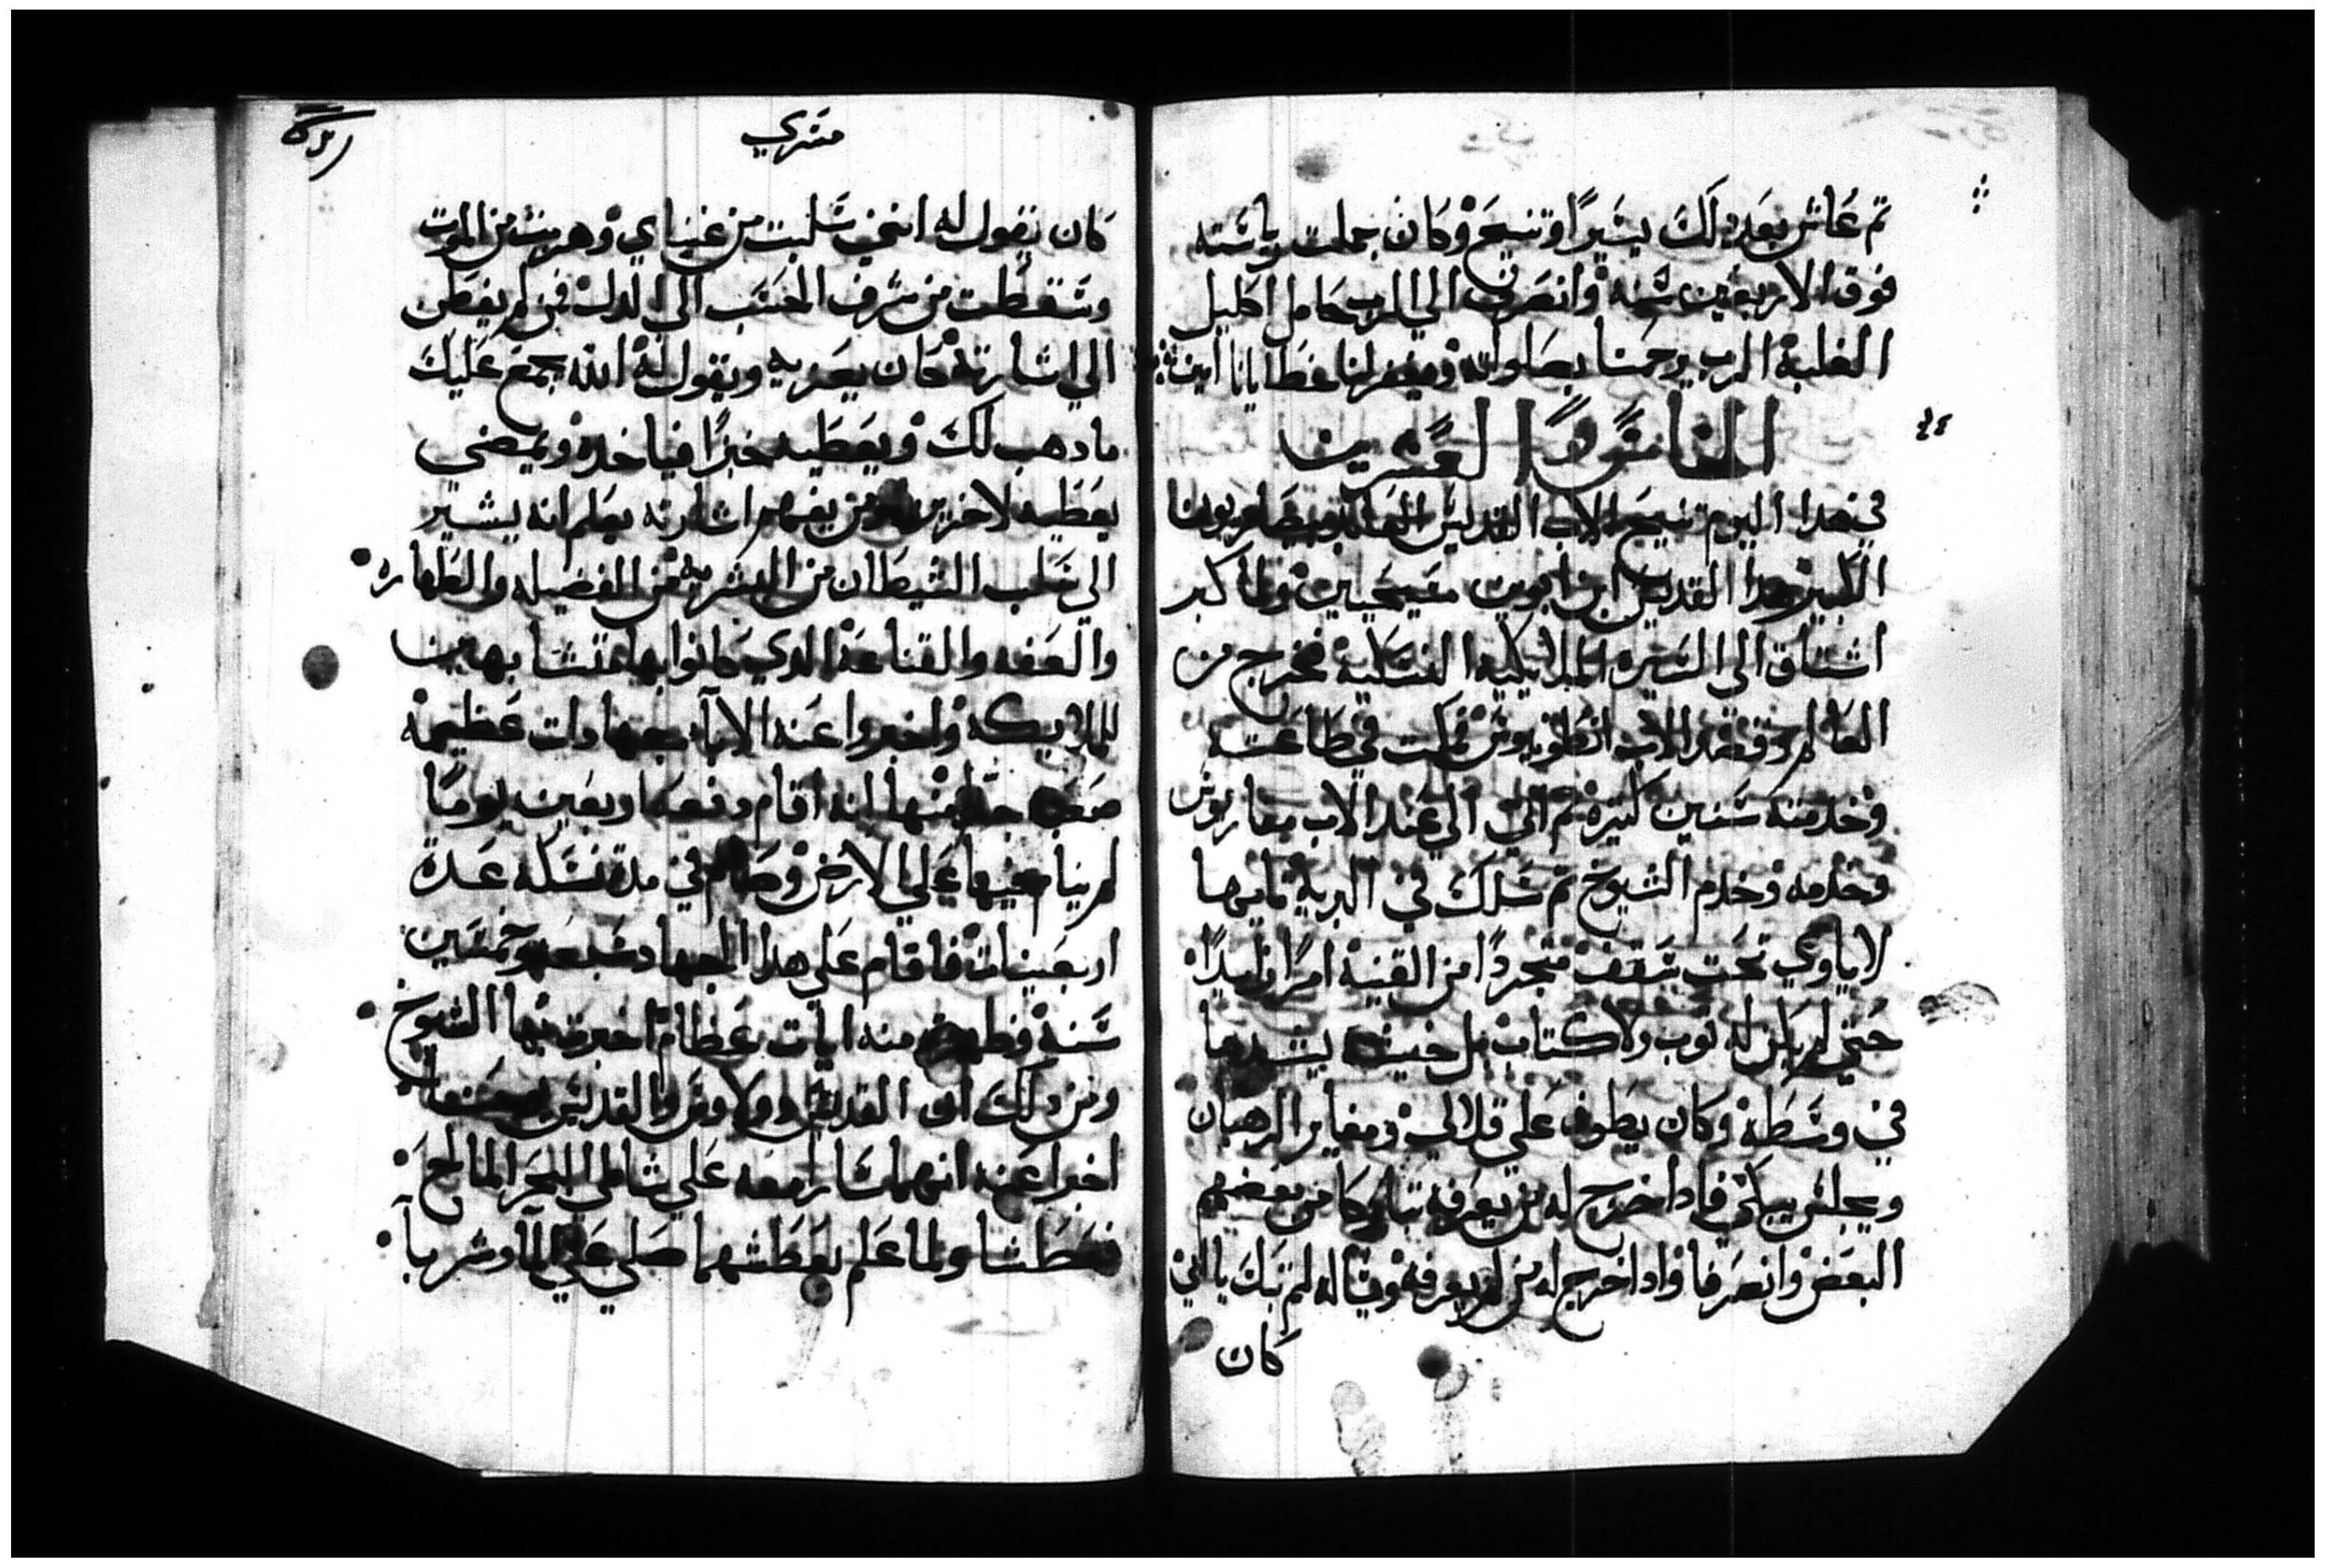 تم عاش بعد دلك يسيرا وتنيح وكانت جملت رياسته
فوق الاربعين سنه وانصرف الي الرب حامل اكليل
الغلبة الرب يرحمنا بصلواته ويغفر لنا خطايانا امين
٢٤
الخامس والعشرين
في هدا اليوم تنيح الاب القديس العابد بيصاريون
الكبير هدا القديس ابن ابوين مسيحيين ولما كبر
اشتاق الي السيره الملايكية النسكية فخرج من
العالم وقصد الاب انطونيوس فمكت في طاعته
وخدمته سنين كتيرة تم اتي الي عند الاب مقاريوس
وخدمه وخدم الشيوخ تم سلك في البرية تايها
لا ياوي تحت سقف متجردا من القنية امرا زايدا
حتي لم يكن له توب ولا كتاب بل خيشه يشدها
في وسطه وكان يطوف علي قلالي ومغاير الرهبان
ويجلس يبكي فادا خرج له من يعرفه تباركا من بعضهم
البعض وانصرفا وادا خرج له من لم يعرفه وقال له لم تبك يا اخي
كان
متري
كان يقول له انني سلبت من غناي وهربت من الموت
وسقطت من شرف الحسب الي الدل فمن لم يفطن
الي اشارته كان يعزيه ويقول له الله يجمع عليك
ما دهب لك ويعطيه خبزا فياخده ويمضي
يعطيه لاخر ومن يفهم اشارته يعلم انه يشير
الي سلب الشيطان من البشرية من الفضيله والطهاره
والعفه والقناعة الدي كانوا بها متشابهين
للملايكه واخبروا عنه الابا بجهادات عظيمه
صعبه جدا منها انه اقام دفعه اربعين يوما
لم ينام فيها علي الارض وصام في مدة نسكه عدة
اربعينات فاقام علي هدا الجهاد سبعه وخمسين
سنة وظهرت منه ايات عظام اخبرت بها الشيوخ
ومن دلك ان القديس دولاوس والقديس
اخبرا عنه انهما سارا معه علي شاطي البحر المالح
فعطشا ولما علم بعطشهما صلي علي الما وشربا